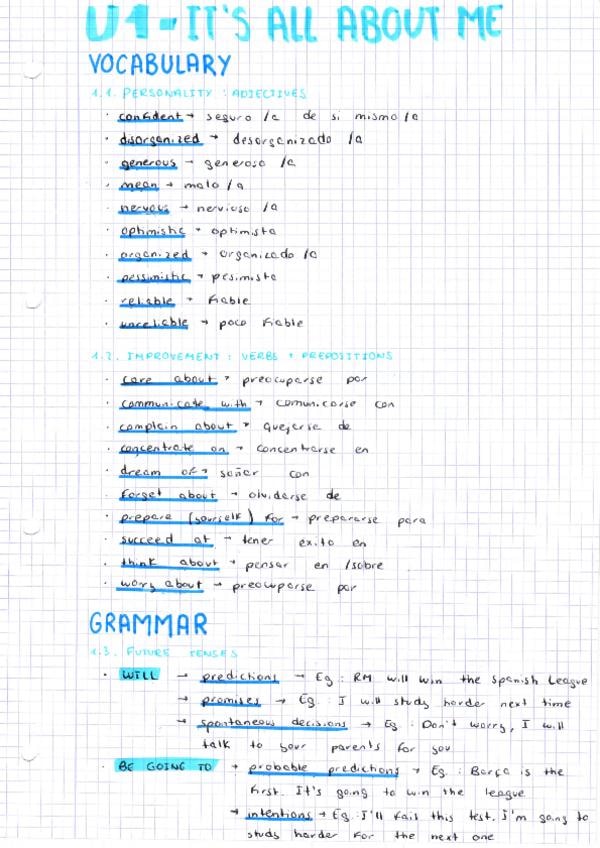 U1-IT'S ALL ABOUT ME
VOCABULARY
1.1. PERSONALITY : ADJECTIVES
· confident → seguro /a de si mismo /a
· disorganized → desorganizado /a
· generous → generoso /a
· mean → malo /a
· nervous → nervioso /a
· optimistic → optimista
· organized → organizado /a
· pessimistic → pesimista
· reliable → fiable
· unreliable → poco fiable
1.2. IMPROVEMENT : VERBS + PREPOSITIONS
· care about → preocuparse por
· communicate with → comunicarse con
· complain about → quejarse de
· concentrate on → concentrarse en
· dream of → soñar con
· forget about → olvidarse de
· prepare (yourself) for → prepararse para
· succeed at → tener exito en
· think about → pensar en /sobre
· worry about → preocuparse por
GRAMMAR
1.3. FUTURE TENSES
· WILL → predictions → Eg : RM will win the Spanish League
→ promises → Eg : I will study harder next time
→ spontaneous decisions → Eg : Don't worry, I will
talk to your parents for you
· BE GOING TO → probable predictions → Eg. : Barça is the
first. It's going to win the league
→ intentions → Eg : I'll fail this test. I'm going to
study harder for the next one